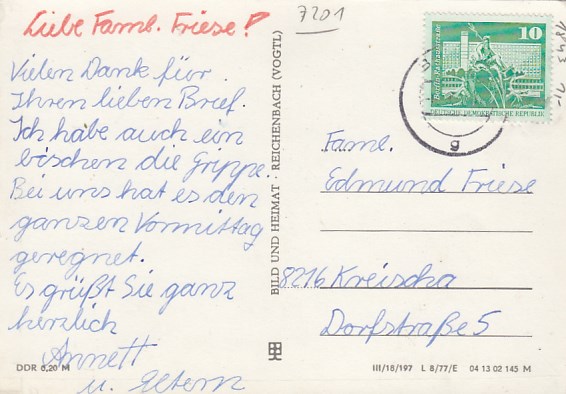 Liebe Faml. Friese!
Vielen Dank für
Ihren lieben Brief.
Ich habe auch ein
bischen die Grippe.
Bei uns hat es den
ganzen Vormittag
geregnet.
Es grüßt Sie ganz
herzlich
Annett
u. Eltern
DDR 0,20 M
BILD UND HEIMAT · REICHENBACH (VOGTL)
7201
10
Berlin, Rathausstraße
DEUTSCHE DEMOKRATISCHE REPUBLIK
g
Faml.
Edmund Friese
8216 Kreischa
Dorfstraße 5
III/18/197 L 8/77/E 04 13 02 145 M